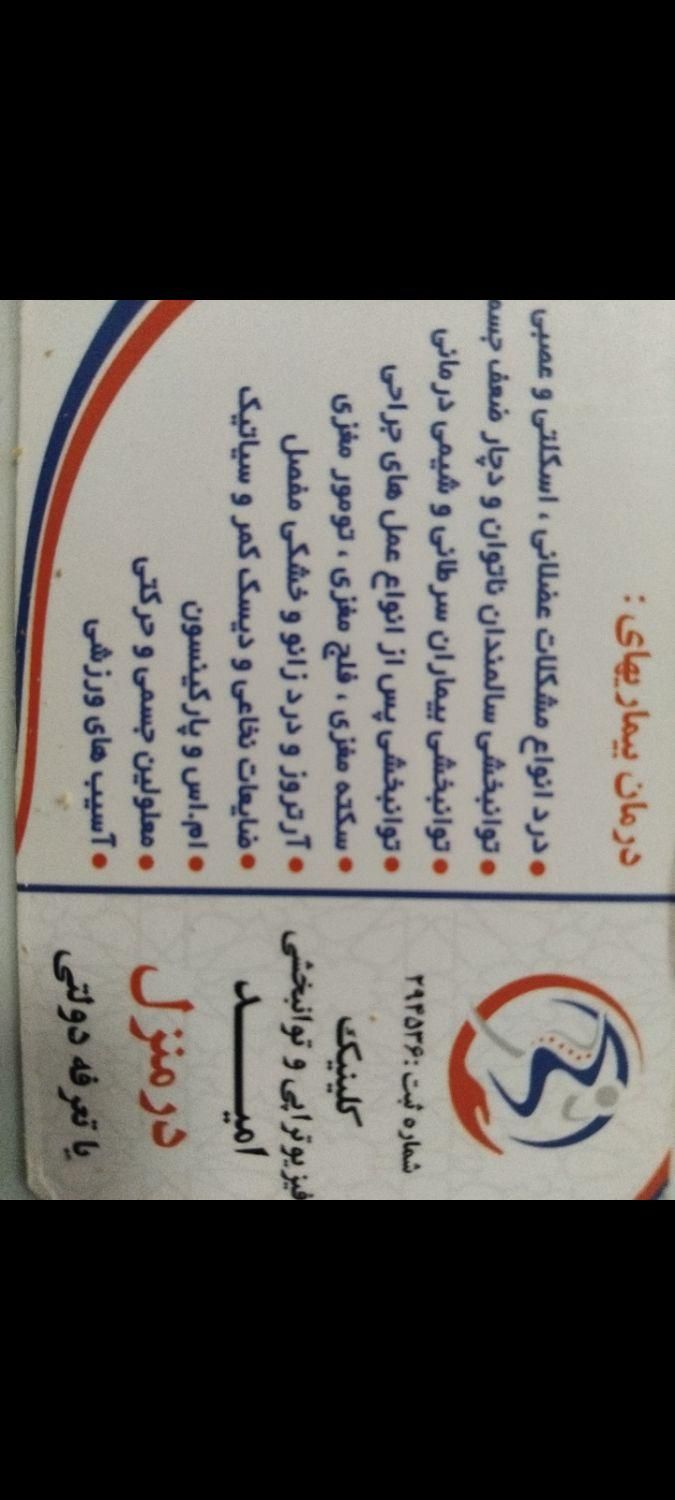 شماره ثبت: ۲۹۴۵۳۶
کلینیک
فیزیوتراپی و توانبخشی
امیـــد
در منزل
با تعرفه دولتی
درمان بیماریهای :
• درد انواع مشکلات عضلانی ، اسکلتی و عصبی
• توانبخشی سالمندان ناتوان و دچار ضعف جسم
• توانبخشی بیماران سرطانی و شیمی درمانی
• توانبخشی پس از انواع عمل های جراحی
• سکته مغزی ، فلج مغزی ، تومور مغزی
• آرتروز و درد زانو و خشکی مفصل
• ضایعات نخاعی و دیسک کمر و سیاتیک
• ام.اس و پارکینسون
• معلولین جسمی و حرکتی
• آسیب های ورزشی